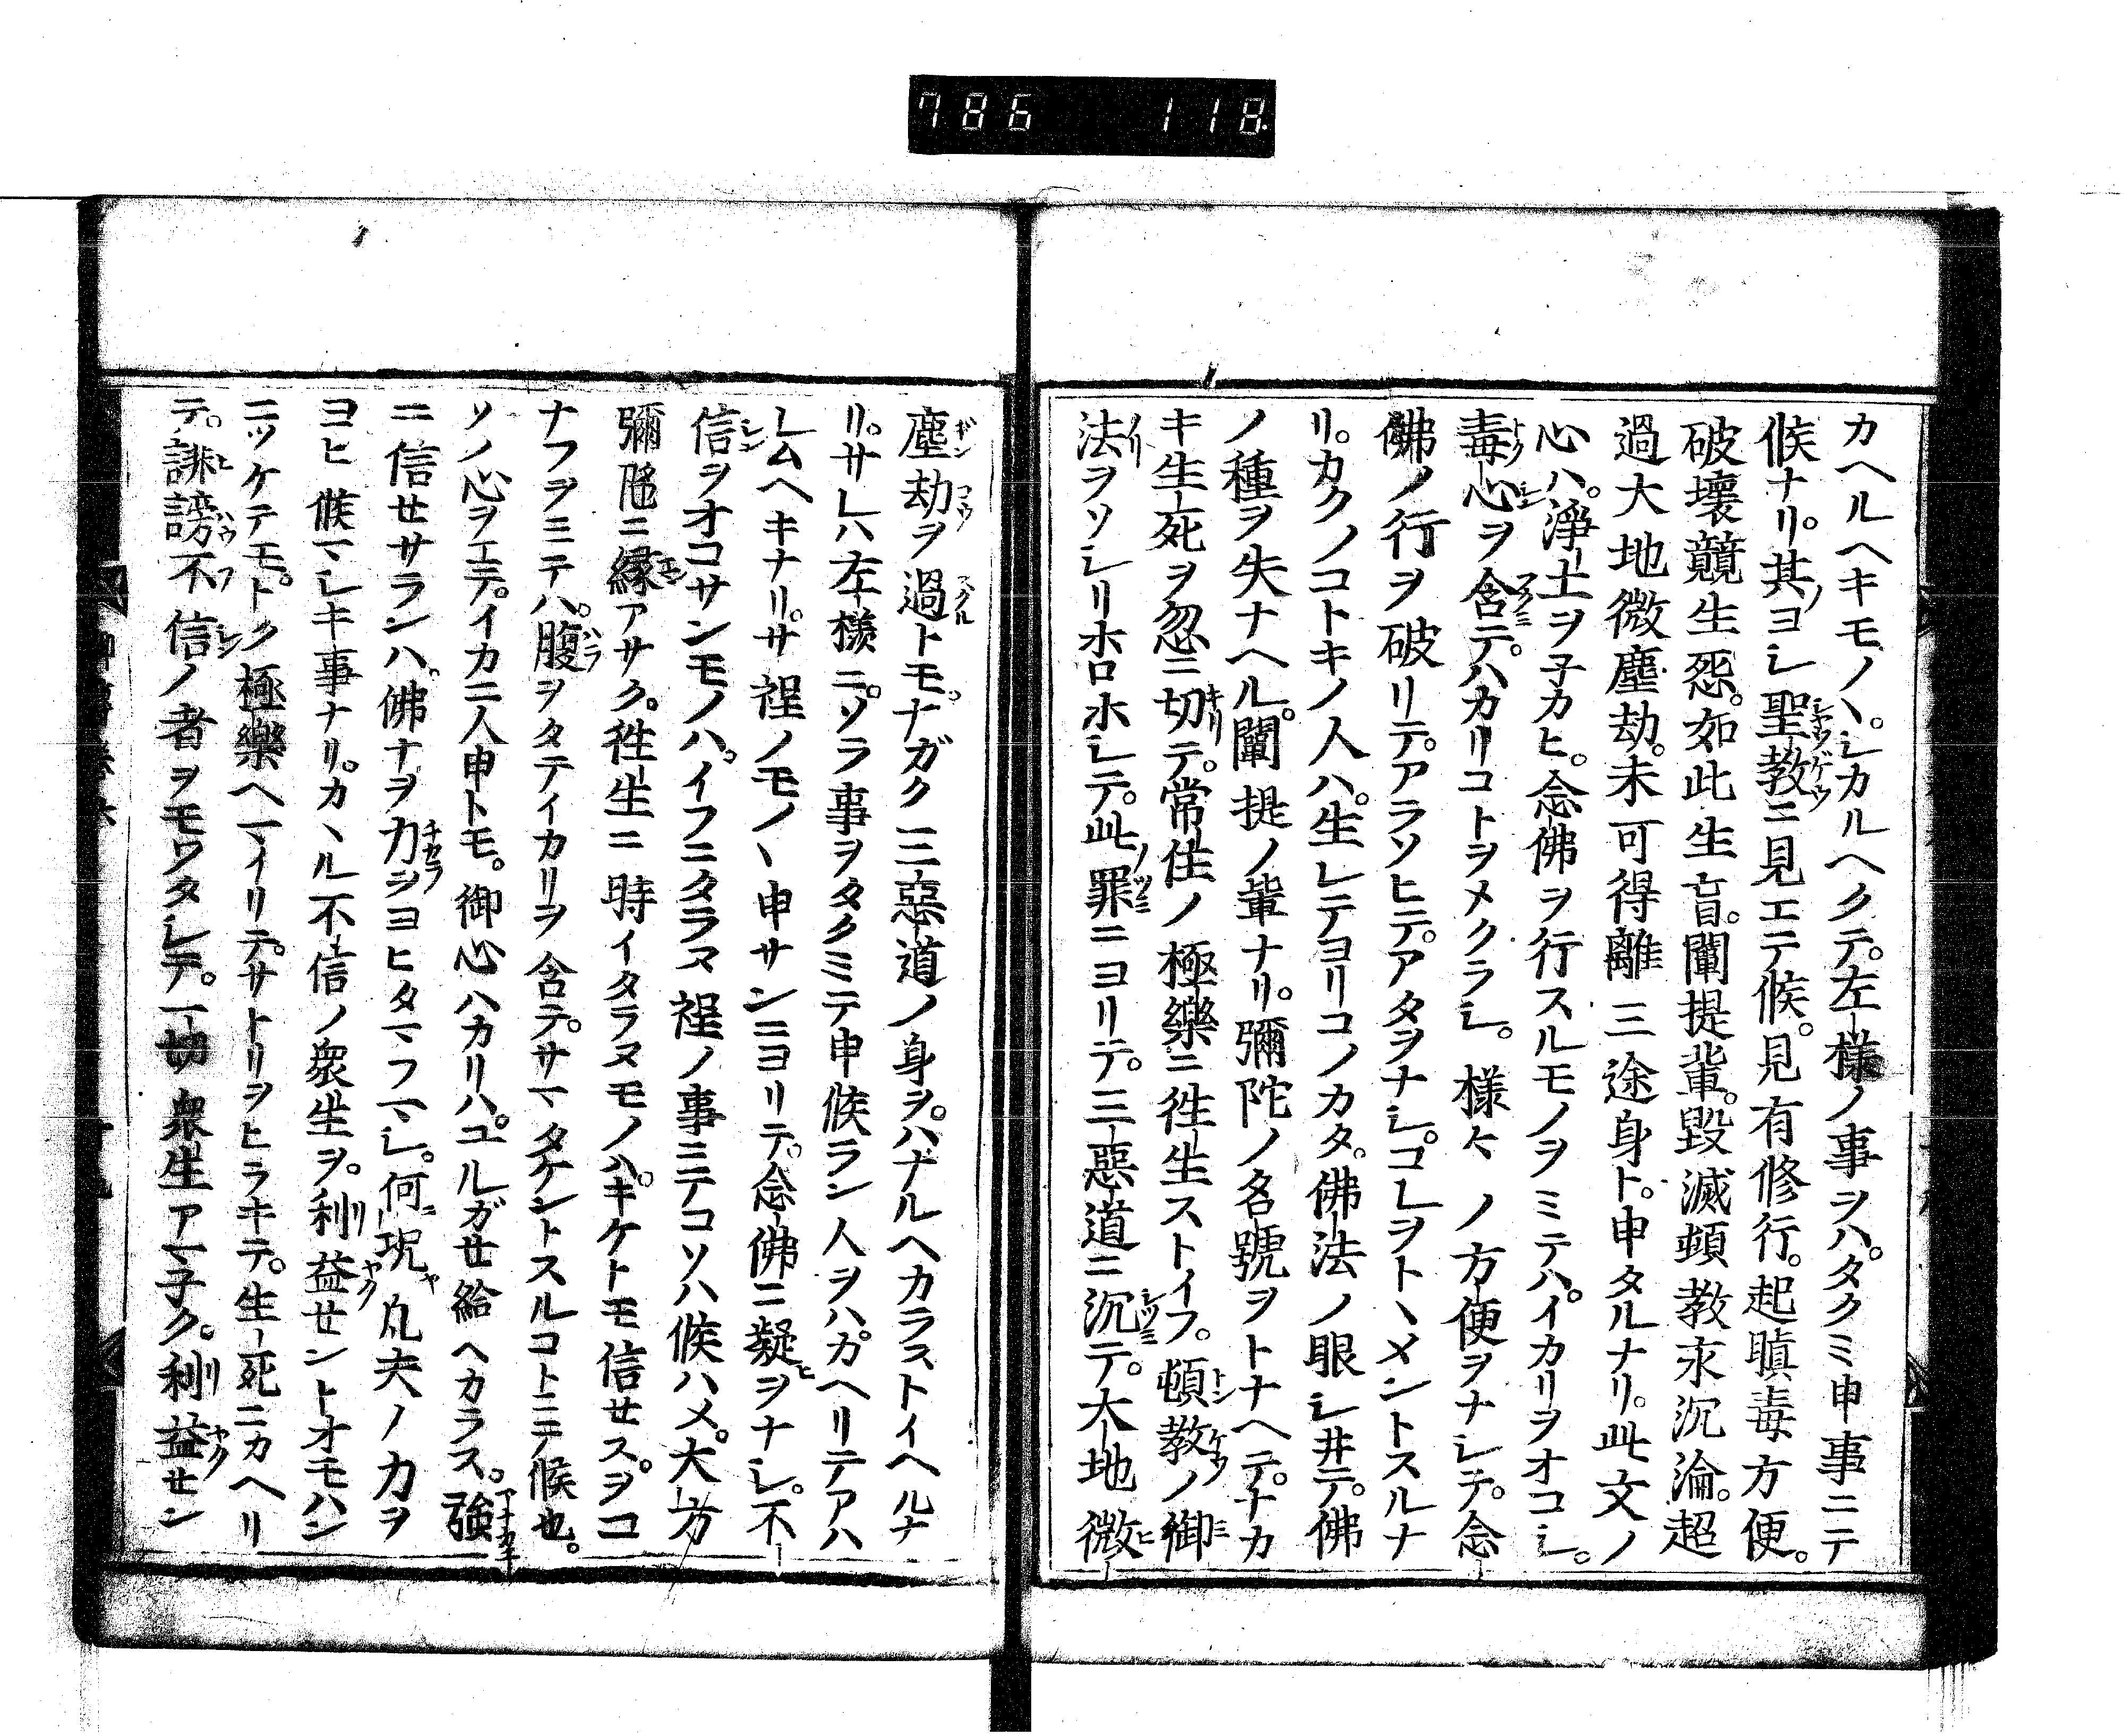 786 118
カヘルヘキモノヽ。シカルヘクテ。左様ノ事ヲハ。タクミ申事ニテ
候ナリ。其ヨシ聖教ニ見エテ候。見有修行。起瞋毒方便。
破壞競生怨。如此生盲。闡提輩。毀滅頓教永沉淪。超
過大地微塵劫。未可得離三途身ト。申タルナリ。此文ノ
心ハ。淨土ヲ子カヒ。念佛ヲ行スルモノヲミテハ。イカリヲオコシ。
毒心ヲ含テ。ハカリコトヲメクラシ。様々ノ方便ヲナシテ。念
佛ノ行ヲ破リテ。アラソヒテ。アタヲナシ。コレヲトヽメントスルナ
リ。カクノコトキノ人ハ。生レテヨリコノカタ。佛法ノ眼シ井テ。佛
ノ種ヲ失ナヘル。闡提ノ輩ナリ。彌陀ノ名號ヲトナヘテ。ナカ
キ生死ヲ忽ニ切テ。常住ノ極樂ニ徃生ストイフ。頓教ノ御
法ヲソシリホロホシテ。此罪ニヨリテ。三惡道ニ沉テ。大地微
塵劫ヲ過トモ。ナガク三惡道ノ身ヲ。ハナルヘカラストイヘルナ
リ。サレハ左様ニ。ソラ事ヲタクミテ申候ラン人ヲハ。カヘリテアハ
レムヘキナリ。サ程ノモノヽ申サンニヨリテ。念佛ニ疑ヲナシ。不
信ヲオコサンモノハ。イフニタラヌ程ノ事ニテコソハ候ハメ。大方
彌陀ニ縁アサク。徃生ニ時イタラヌモノハ。キケトモ信セス。ヲコ
ナフヲミテハ。腹ヲタテイカリヲ含テ。サマタケントスルコトニテ候也。
ソノ心ヲエテ。イカニ人申トモ。御心ハカリハ。ユルガせ給ヘカラス。強
ニ信せサランハ。佛ナヲ力ヲヨヒタマフマシ。何況凡夫ノ力ヲ
ヨヒ候マシキ事ナリ。カヽル不信ノ衆生ヲ。利益せントオモハン
ニツケテモ。トク極樂ヘマイリテ。サトリヲヒラキテ。生死ニカヘリ
テ。誹謗不信ノ者ヲモワタシテ。一切衆生アマ子ク。利益せン